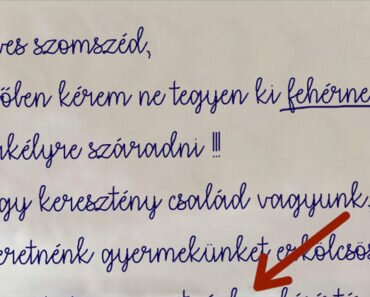 ves szomszéd,
őben kérem ne tegyen ki fehérne
kélyre száradni !!!
gy keresztény család vagyunk,
eretnénk gyermekünket erkölcsös